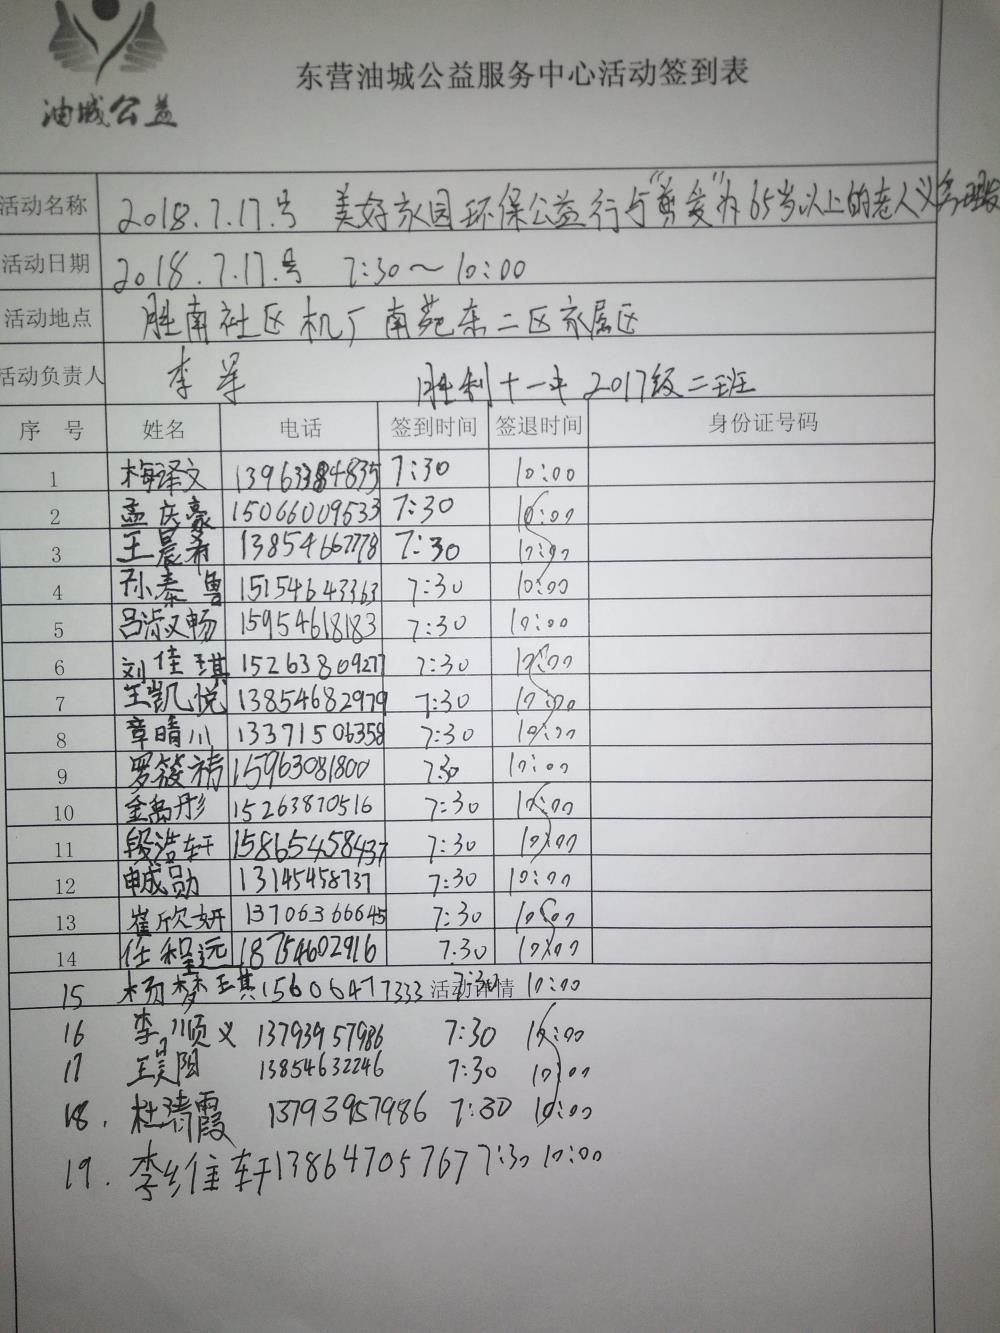 油城公益
东营油城公益服务中心活动签到表
活动名称 2018.7.17.号 美好家园环保公益行与“剪爱”为65岁以上的老人义务理发
活动日期 2018.7.17.号 7:30～10:00
活动地点 胜南社区机厂南苑东二区家属区
活动负责人 李军 胜利十一中2017级二班
序 号 姓名 电话 签到时间 签退时间 身份证号码
1 梅译文 13963384835 7:30 10:00
2 孟庆豪 15066009533 7:30 10:00
3 王晨希 13854667778 7:30 10:00
4 孙秦鲁 15154643363 7:30 10:00
5 吕淑畅 15954618183 7:30 10:00
6 刘佳琪 15263809277 7:30 10:00
7 王凯悦 13854682979 7:30 10:00
8 章晴川 13371506358 7:30 10:00
9 罗筱祷 15963081800 7:30 10:00
10 金禹彤 15263870516 7:30 10:00
11 段浩轩 15865458437 7:30 10:00
12 申成勋 13145458737 7:30 10:00
13 崔欣妍 13706366645 7:30 10:00
14 任程远 18754602916 7:30 10:00
15 杨梦琪 15606477333 活动详情 7:30 10:00
16 李顺义 13793957986 7:30 10:00
17 王昊阳 13854632246 7:30 10:00
18. 杜清霞 13793957986 7:30 10:00
19. 李维轩 13864705767 7:30 10:00